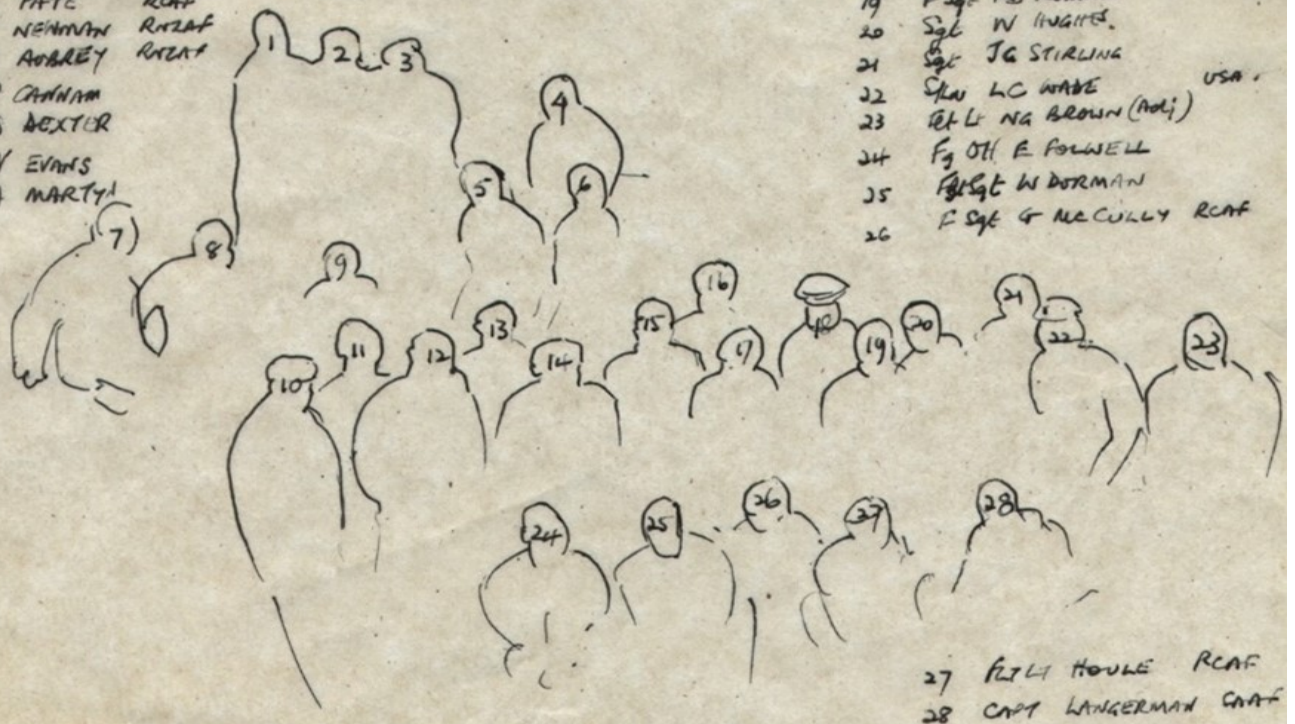 NEWMAN RNZAF
AUBREY RNZAF
CANNAM
DEXTER
EVANS
MARTYN
19
20 Sgt W HUGHES.
21 Sgt JG STIRLING
22 S/Ldr LC WADE USA.
23 Flt Lt NG BROWN (Adj)
24 Fg Off E FOLWELL
25 Sgt W DORMAN
26 F Sgt G McCULLY RCAF
1
2
3
4
5
6
7
8
9
10
11
12
13
14
15
16
17
18
19
20
21
22
23
24
25
26
27
28
27 FLT LT HOULE RCAF
28 CAPT LANGERMAN SAAF